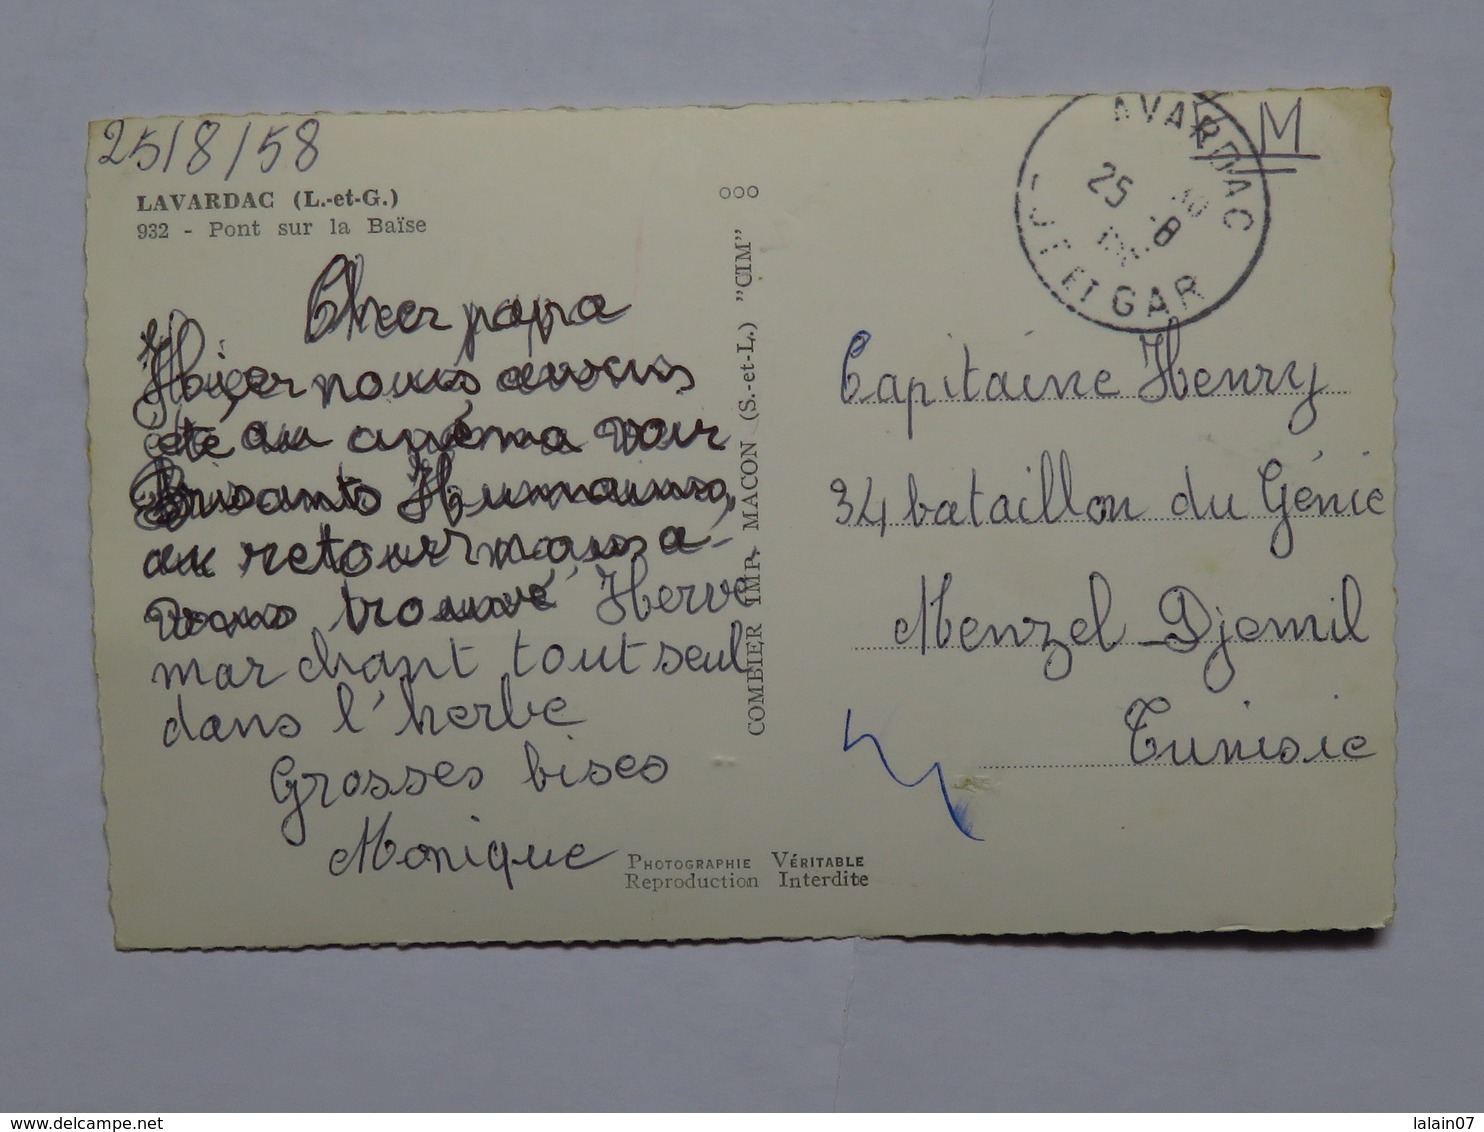 25/8/58
LAVARDAC (L.-et-G.)
932 - Pont sur la Baïse
Cher papa
Hier nous avons
été au cinéma voir
Bisants Humains,
au retour nous a-
vons trouvé Hervé
marchant tout seul
dans l'herbe
Grosses bises
Monique
ooo
COMBIER IMP. MACON (S.-et-L.) "CIM"
PHOTOGRAPHIE VÉRITABLE
Reproduction Interdite
F M
AVARDAC
25 -8
ET GAR
Capitaine Henry
34 bataillon du Génie
Menzel Djemil
Tunisie
lalain07